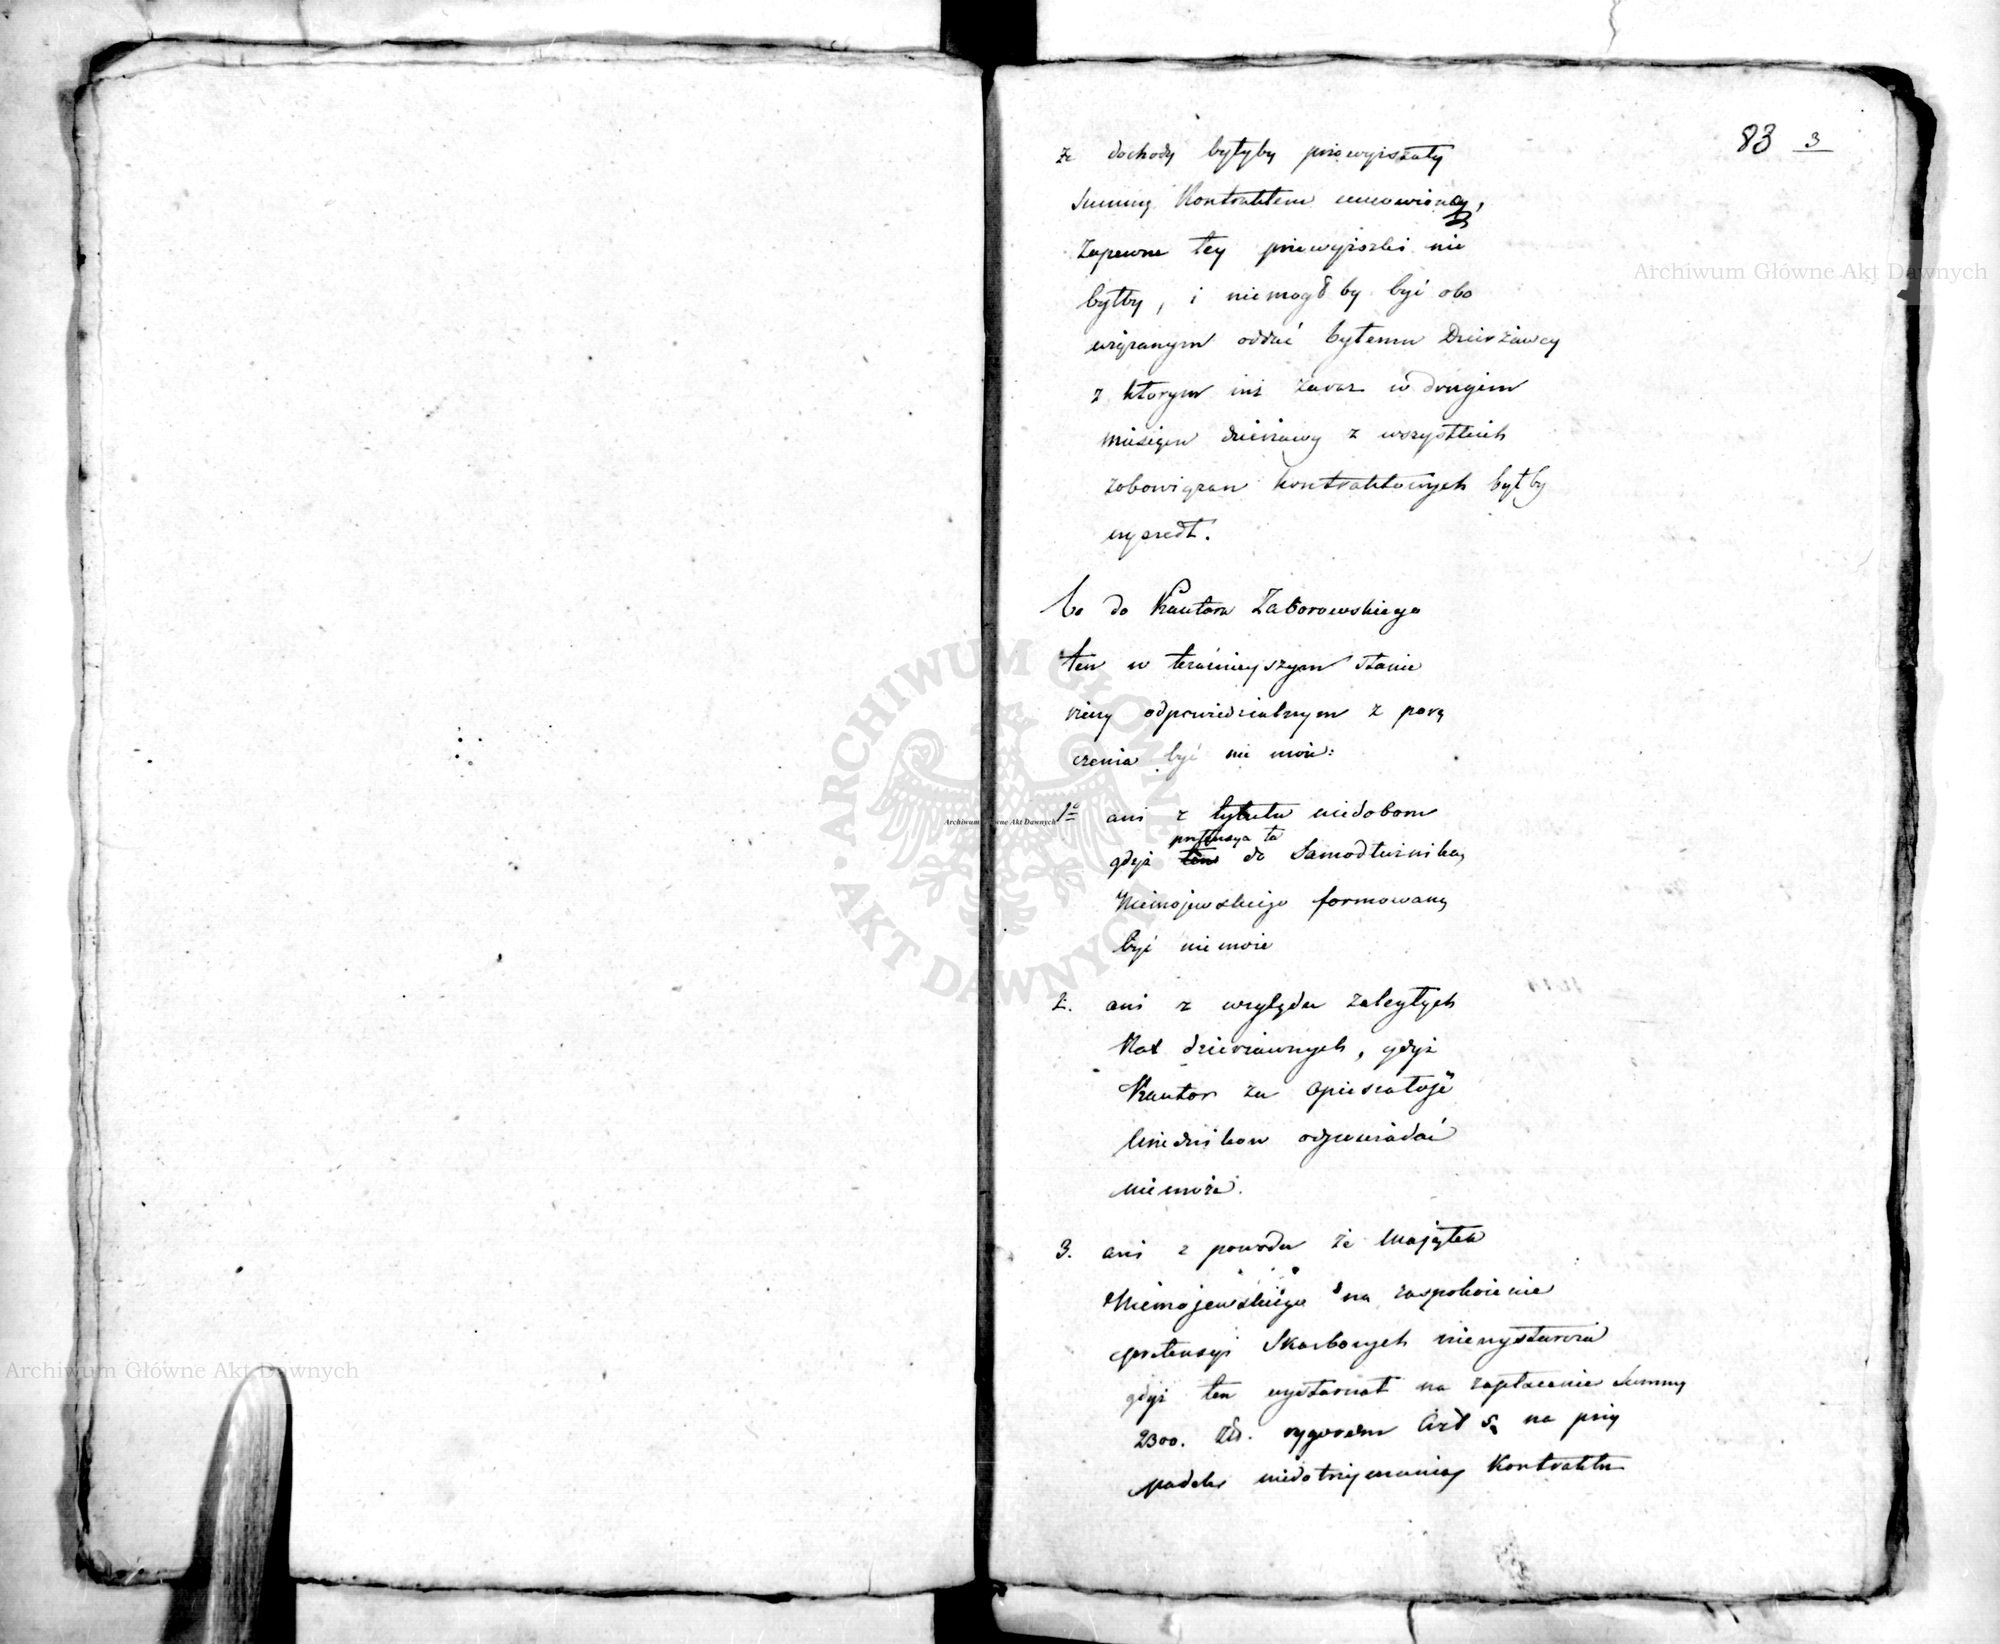 83 3
że dochody byłyby przewyższały
Summę Kontraktem umowioną,
Zapewne tey przewyżki nie
byłby, i niemogł by być obo
wiązanym oddać byłemu Dzierżawcy
z ktorym iuż zaraz w drugim
miesiącu dzierżawy z wszystkich
zobowiązań kontraktowych byłby
wyszedł.
Co do Kautora Zaborowskiego
ten w terażnieyszym stanie
rzeczy odpowiedzialnym z porę
czenia być nie może:
1º ani z tytułu niedoboru
pretensya ta
gdyż ten do Samodłużnika
Niemojewskiego formowaną
być niemoże
2. ani z względu zaległych
Rat dzierżawnych, gdyż
Kautor za opieszałość
Urzędnikow odpowiadać
niemoże.
3. ani z powodu że Majątek
Niemojewskiego na zaspokoienie
pretensyi Skarbowych niewystarcza
gdyż ten wystarczał na zapłacenie Summy
2300. Złp. rygorem Art 5. na przy
padek niedotrzymania Kontraktu
Archiwum Główne Akt Dawnych
Archiwum Główne Akt Dawnych
Archiwum Główne Akt Dawnych
ARCHIWUM GŁÓWNE AKT DAWNYCH